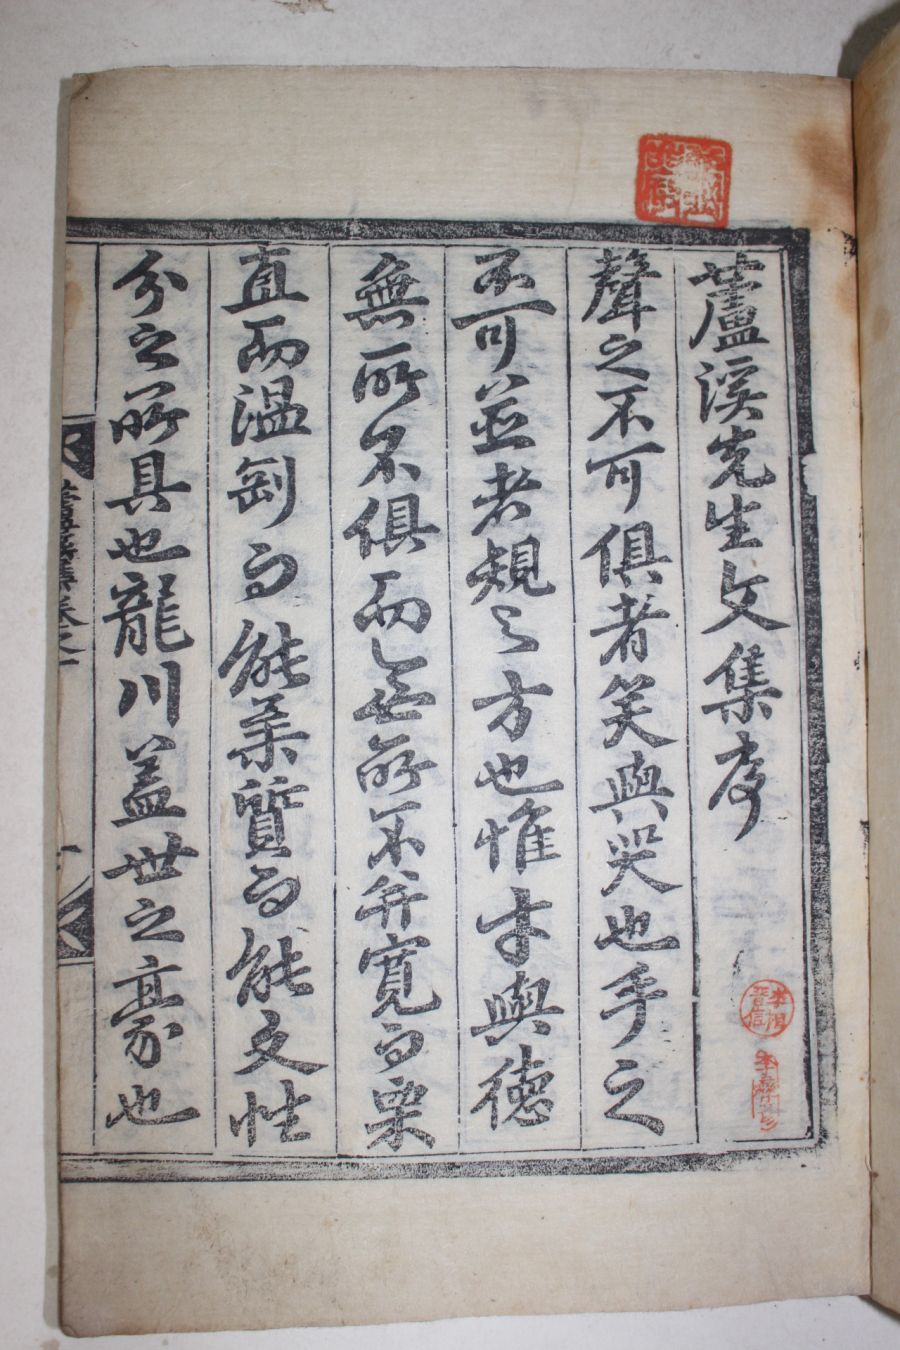 蘆溪先生文集序
聲之不可俱者笑與哭也手之
不可並者規之方也惟才與德
無所不俱而無所不并寬而栗
直而溫剛而能柔質而能文性
分之所具也龍川盖世之豪也